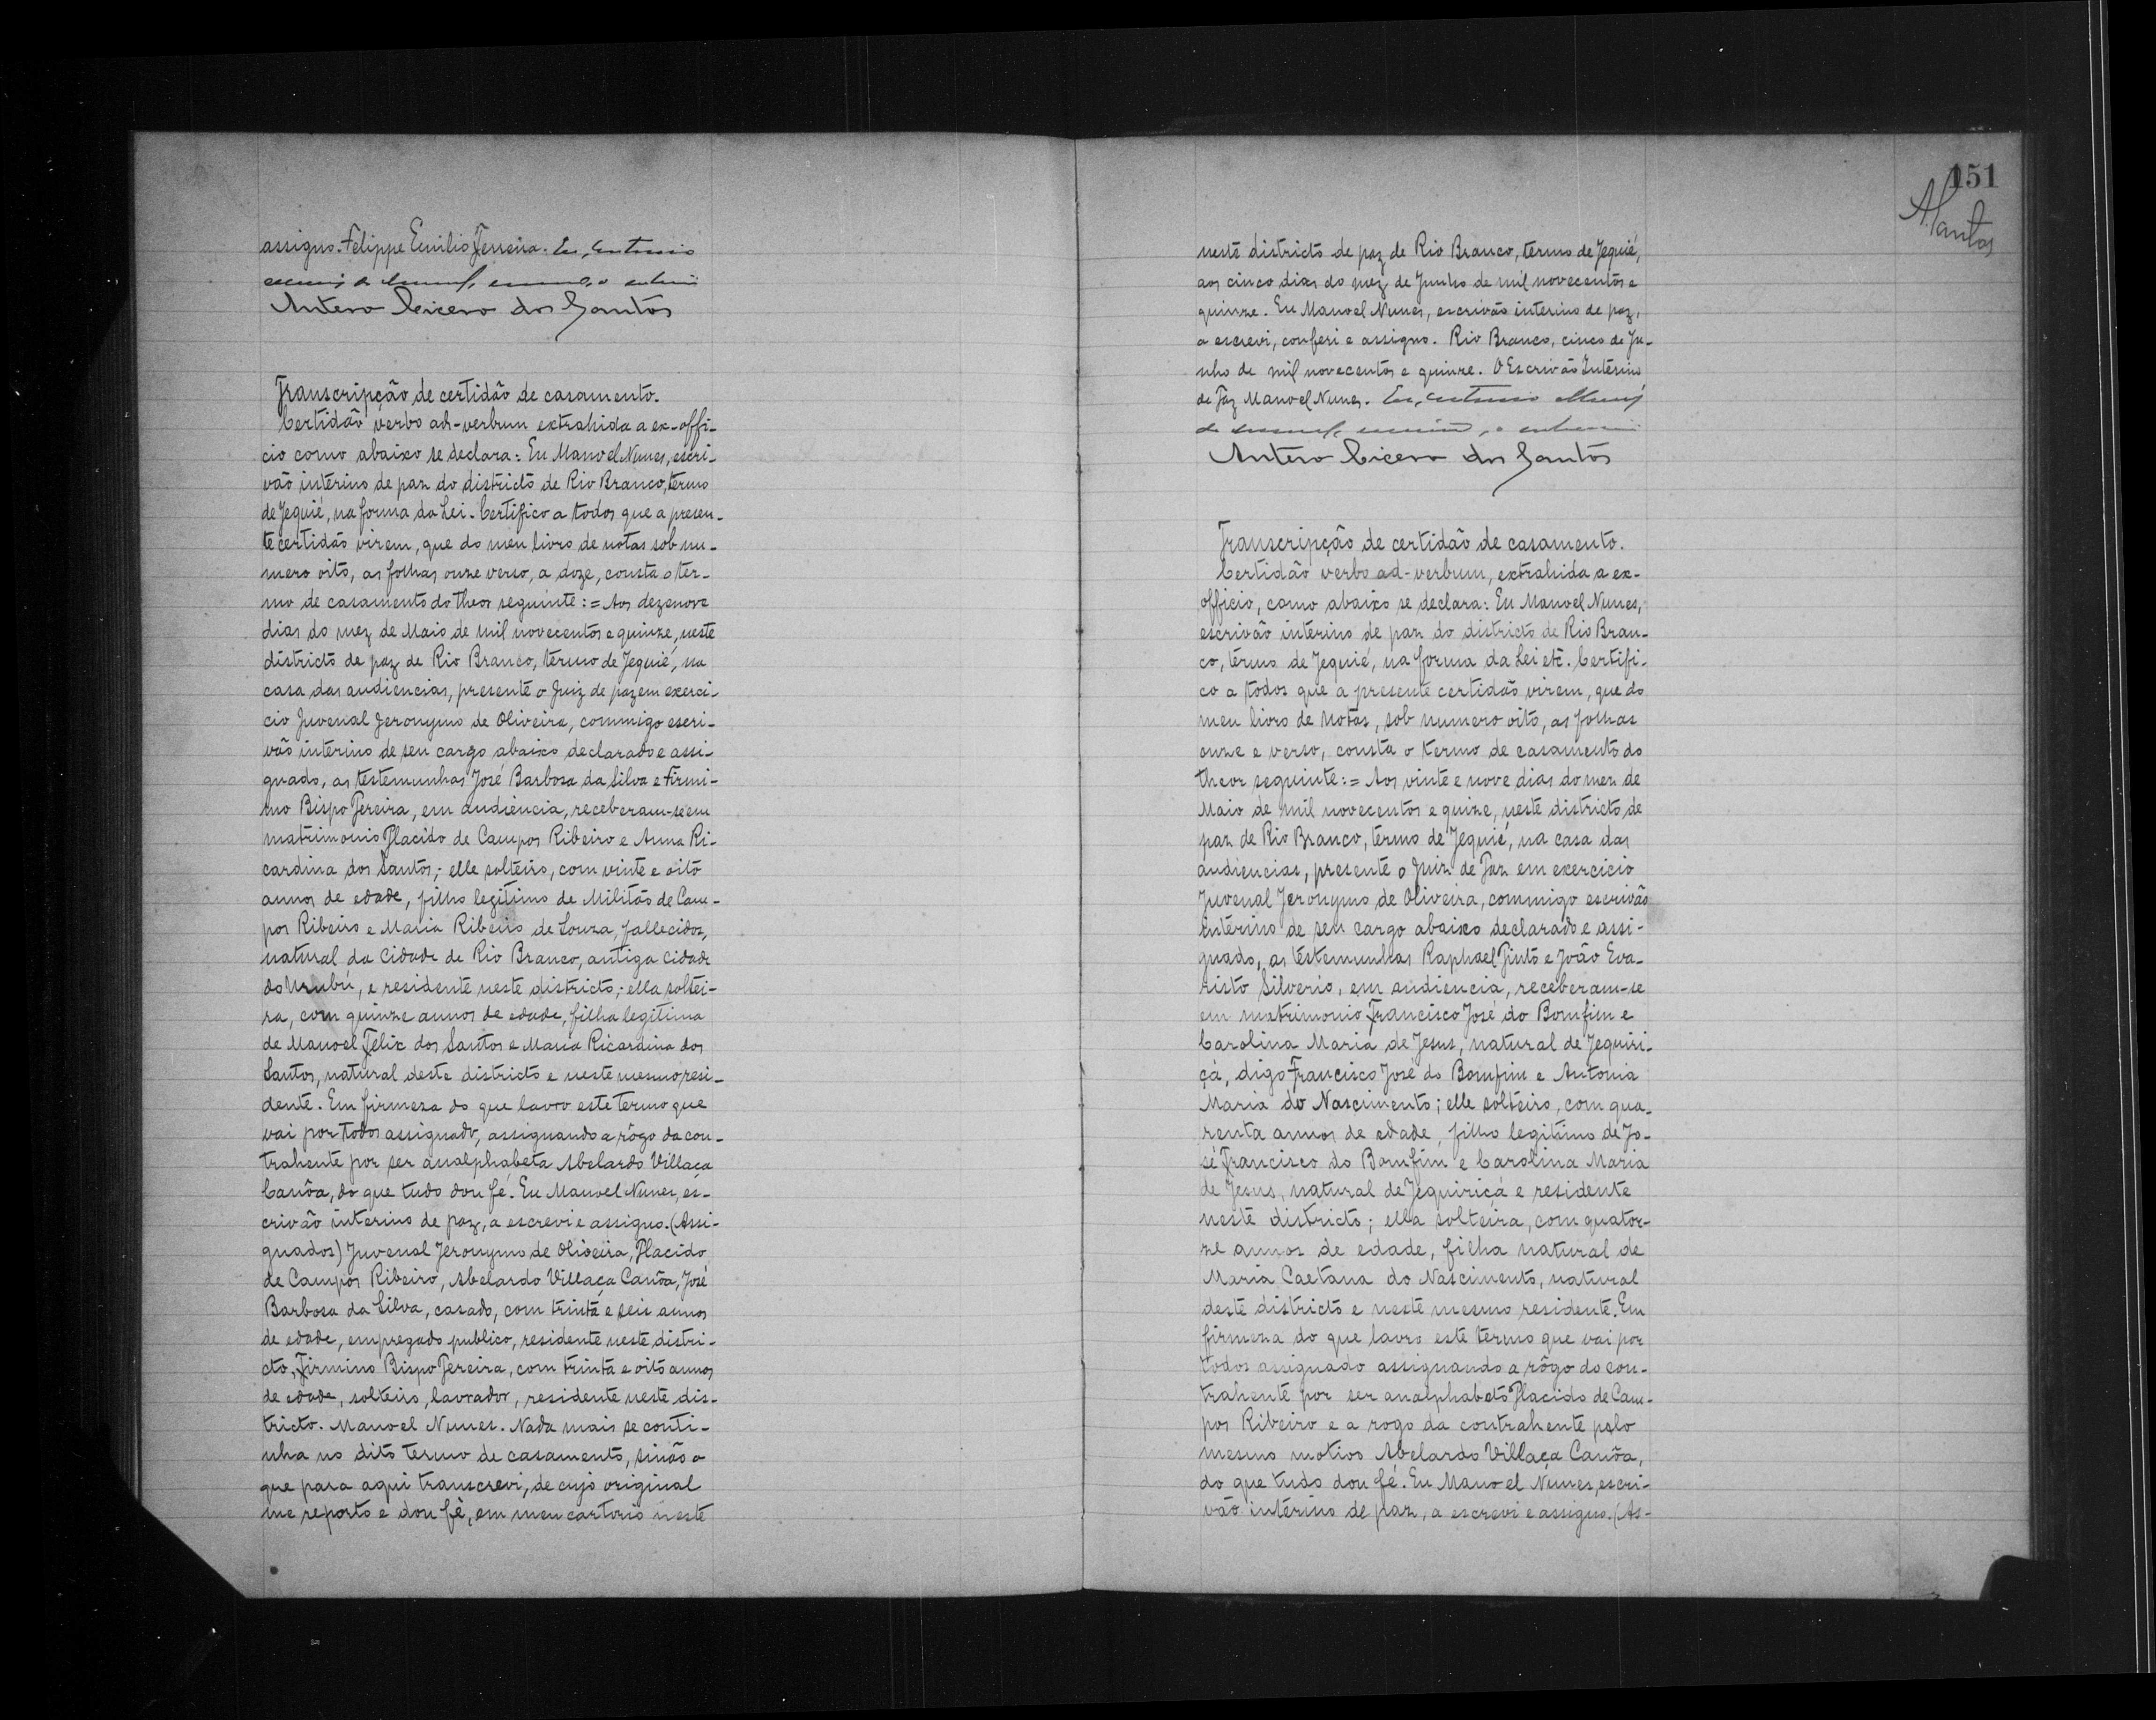 assigno. Felippe Emilio Ferreira. Eu, Antonio
Antero Cicero dos Santos
Transcripção de certidão de casamento.
Certidão verbo ad-verbum extrahida a ex-offi-
cio como abaixo se declara: Eu Manoel Nunes, escri-
vão interino de paz do districto de Rio Branco, termo
de Jequié, na forma da Lei. Certifico a todos que a presen-
te certidão virem, que do meu livro de notas sob nu-
mero oito, as folhas onze verso, a doze, consta o ter-
mo de casamento do theor seguinte: = Aos dezenove
dias do mez de Maio de mil novecentos e quinze, neste
districto de paz de Rio Branco, termo de Jequié, na
casa das audiencias, presente o Juiz de paz em exerci-
cio Juvenal Jeronymo de Oliveira, commigo escri-
vão interino de seu cargo abaixo declarado e assi-
gnado, as testemunhas José Barbosa da Silva e Firmi-
mo Bispo Pereira, em audiencia, receberam-se em
matrimonio Placido de Campos Ribeiro e Anna Ri-
cardina dos Santos; elle solteiro, com vinte e oito
annos de edade, filho legitimo de Militão de Cam-
pos Ribeiro e Maria Ribeiro de Souza, fallecidos,
natural da Cidade de Rio Branco, antiga cidade
do Urubú, e residente neste districto; ella soltei-
ra, com quinze annos de edade, filha legitima
de Manoel Felix dos Santos e Maria Ricardina dos
Santos, natural deste districto e neste mesmo resi-
dente. Em firmeza do que lavro este termo que
vai por todos assignado, assignando a rôgo da con-
trahente por ser analphabeta Abelardo Villaça
Canôa, do que tudo dou fé. Eu Manoel Nunes, es-
crivão interino de paz, a escrevi e assigno. (Assi-
gnados) Juvenal Jeronymo de Oliveira, Placido
de Campos Ribeiro, Abelardo Villaça Canôa, José
Barbosa da Silva, casado, com trinta e seis annos
de edade, empregado publico, residente neste distri-
cto, Firmino Bispo Pereira, com trinta e oito annos
de edade, solteiro, lavrador, residente neste dis-
tricto. Manoel Nunes. Nada mais se conti-
nha no dito termo de casamento, sinão o
que para aqui transcrevi, de cujo original
me reporto e dou fé, em meu cartorio neste
151
ASantos
neste districto de paz de Rio Branco, termo de Jequié,
aos cinco dias do mez de Junho de mil novecentos e
quinze. Eu Manoel Nunes, escrivão interino de paz,
a escrevi, conferi e assigno. Rio Branco, cinco de Ju-
nho de mil novecentos e quinze. O Escrivão Interino
de Paz Manoel Nunes. Eu, Antonio
Antero Cicero dos Santos
Transcripção de certidão de casamento.
Certidão verbo ad-verbum, extrahida a ex-
officio, como abaixo se declara: Eu Manoel Nunes,
escrivão interino de paz do districto de Rio Bran-
co, termo de Jequié, na forma da Lei etc. Certifi-
co a todos que a presente certidão virem, que do
meu livro de notas, sob numero oito, as folhas
onze e verso, consta o termo de casamento do
theor seguinte: = Aos vinte e nove dias do mez de
Maio de mil novecentos e quinze, neste districto de
paz de Rio Branco, termo de Jequié, na casa das
audiencias, presente o Juiz de Paz em exercicio
Juvenal Jeronymo de Oliveira, commigo escrivão
interino de seu cargo abaixo declarado e assi-
gnado, as testemunhas Raphael Pinto e João Eva-
risto Silverio, em audiencia, receberam-se
em matrimonio Francisco José do Bomfim e
Carolina Maria de Jesus, natural de Jequiri-
çá, digo Francisco José do Bomfim e Antonia
Maria do Nascimento; elle solteiro, com qua-
renta annos de edade, filho legitimo de Jo-
sé Francisco do Bomfim e Carolina Maria
de Jesus, natural de Jequiriçá e residente
neste districto; ella solteira, com quator-
ze annos de edade, filha natural de
Maria Caetana do Nascimento, natural
deste districto e neste mesmo residente. Em
firmeza do que lavro este termo que vai por
todos assignado assignando a rôgo do con-
trahente por ser analphabeto Placido de Cam-
pos Ribeiro e a rogo da contrahente pelo
mesmo motivo Abelardo Villaça Canôa,
do que tudo dou fé. Eu Manoel Nunes, escri-
vão interino de paz, a escrevi e assigno. (As-